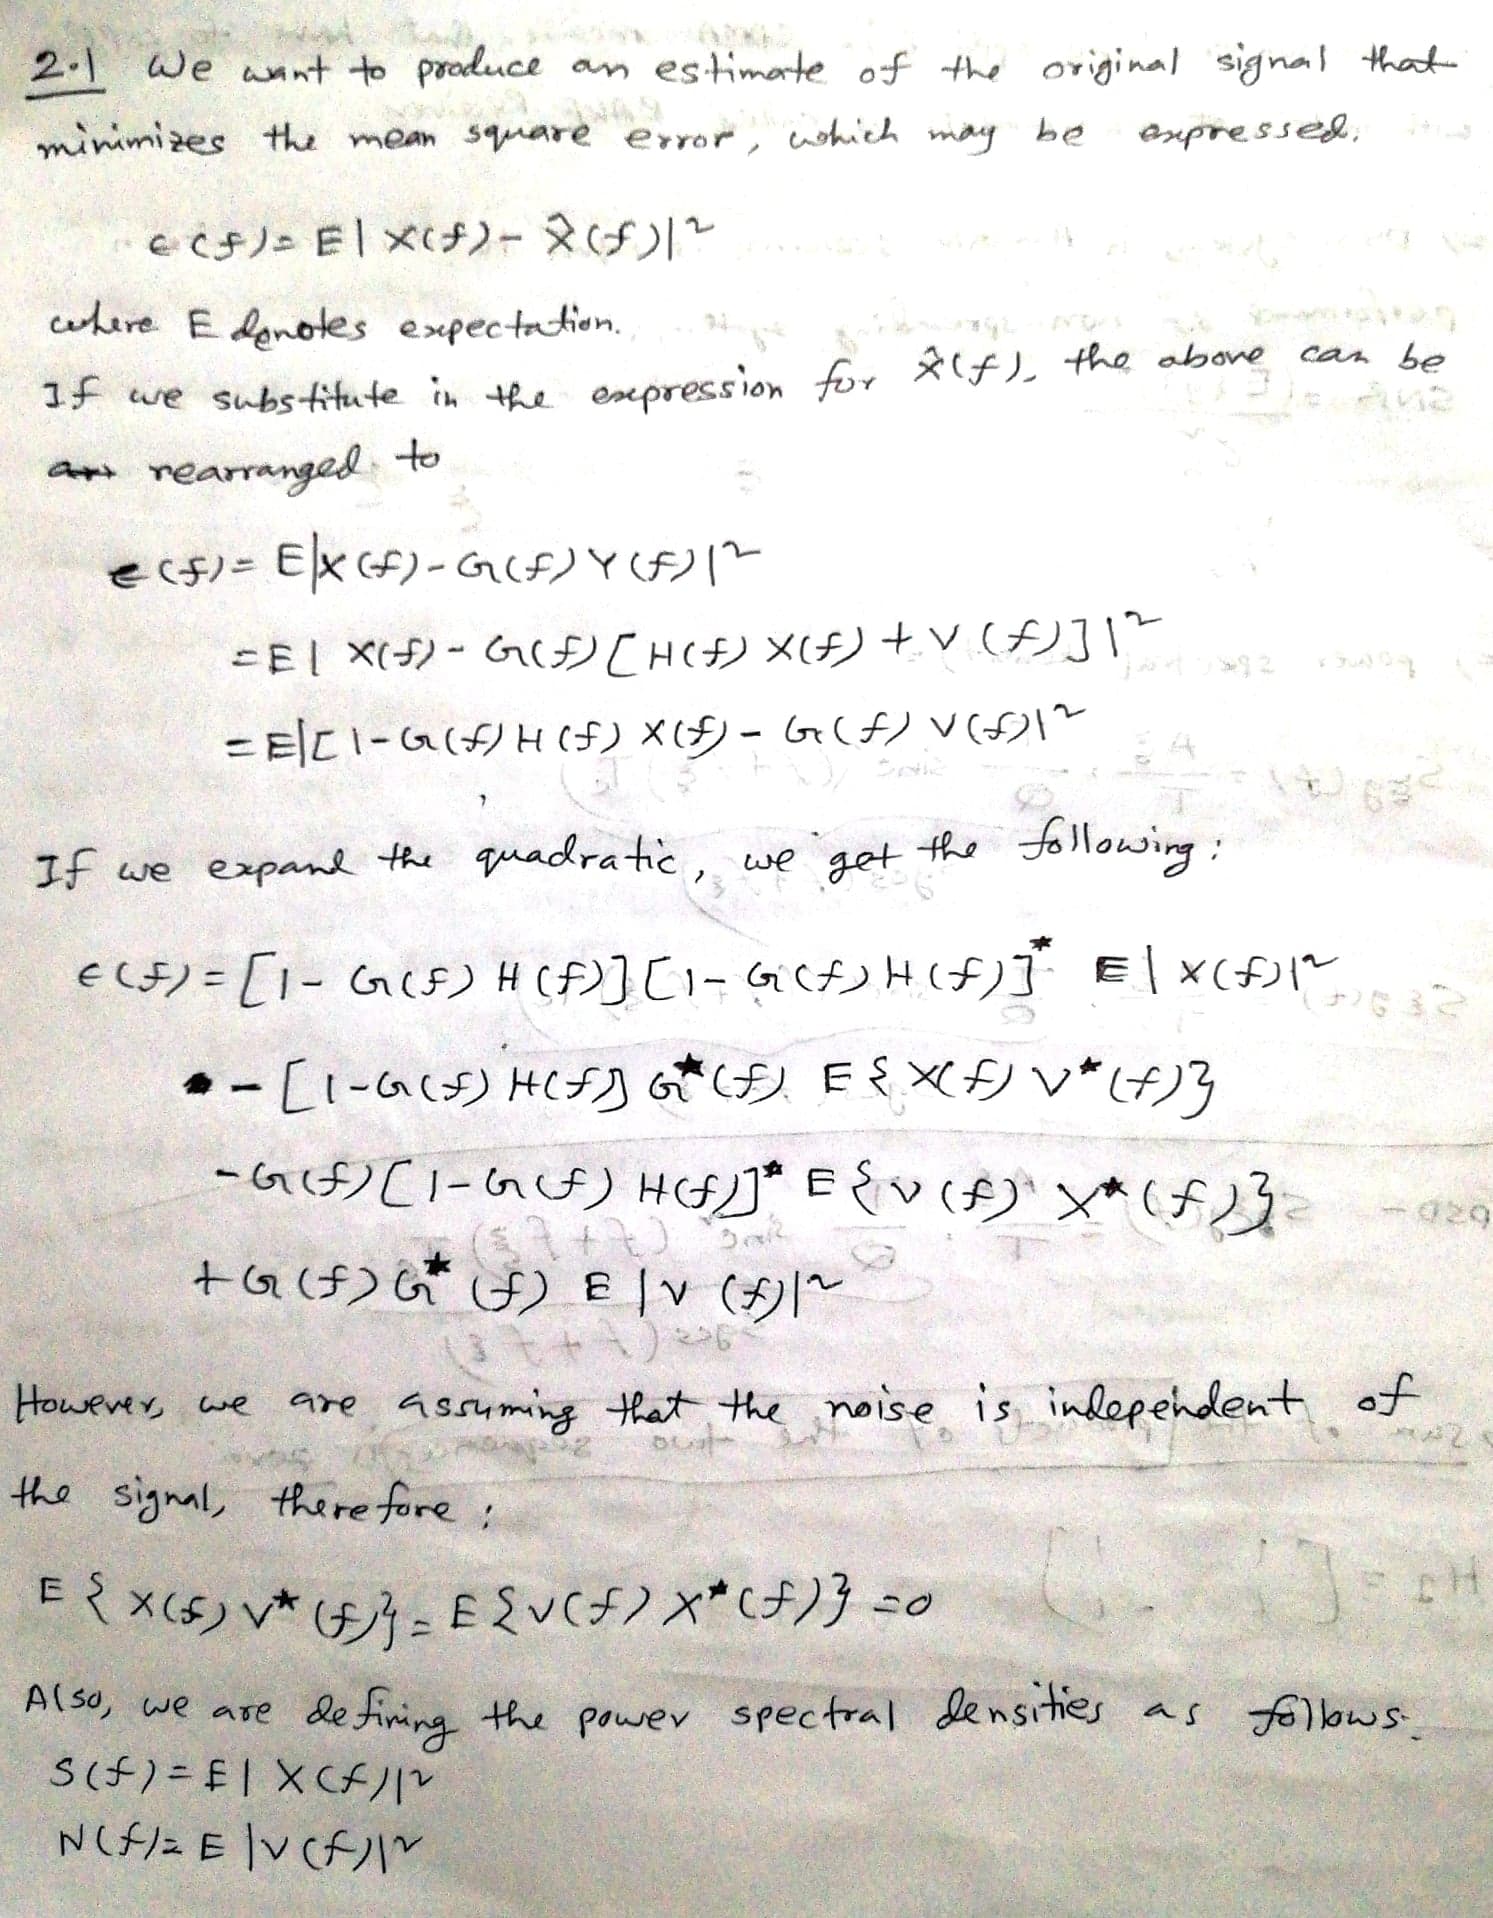 2.1 We want to produce an estimate of the original signal that
minimizes the mean square error, which may be expressed.
ϵ(f)= E|X(f)-X̂(f)|²
where E denotes expectation.
If we substitute in the expression for X̂(f), the above can be
rearranged to
ϵ(f)= E|X(f)-G(f)Y(f)|²
=E| X(f)- G(f)[H(f) X(f)+V(f)]|²
=E|[1-G(f)H(f) X(f) - G(f) V(f)|²
If we expand the quadratic, we get the following:
ϵ(f)=[1- G(f) H(f)][1-G(f)H(f)]* E|X(f)|²
-[1-G(f) H(f)] G*(f) E{X(f) V*(f)}
-G(f)[1-G(f) H(f)]* E{V(f) X*(f)}
+G(f)G*(f) E|V(f)|²
However, we are assuming that the noise is independent of
the signal, therefore:
E{X(f) V*(f)}=E{V(f) X*(f)}=0
Also, we are defining the power spectral densities as follows.
S(f)=E|X(f)|²
N(f)=E|V(f)|²